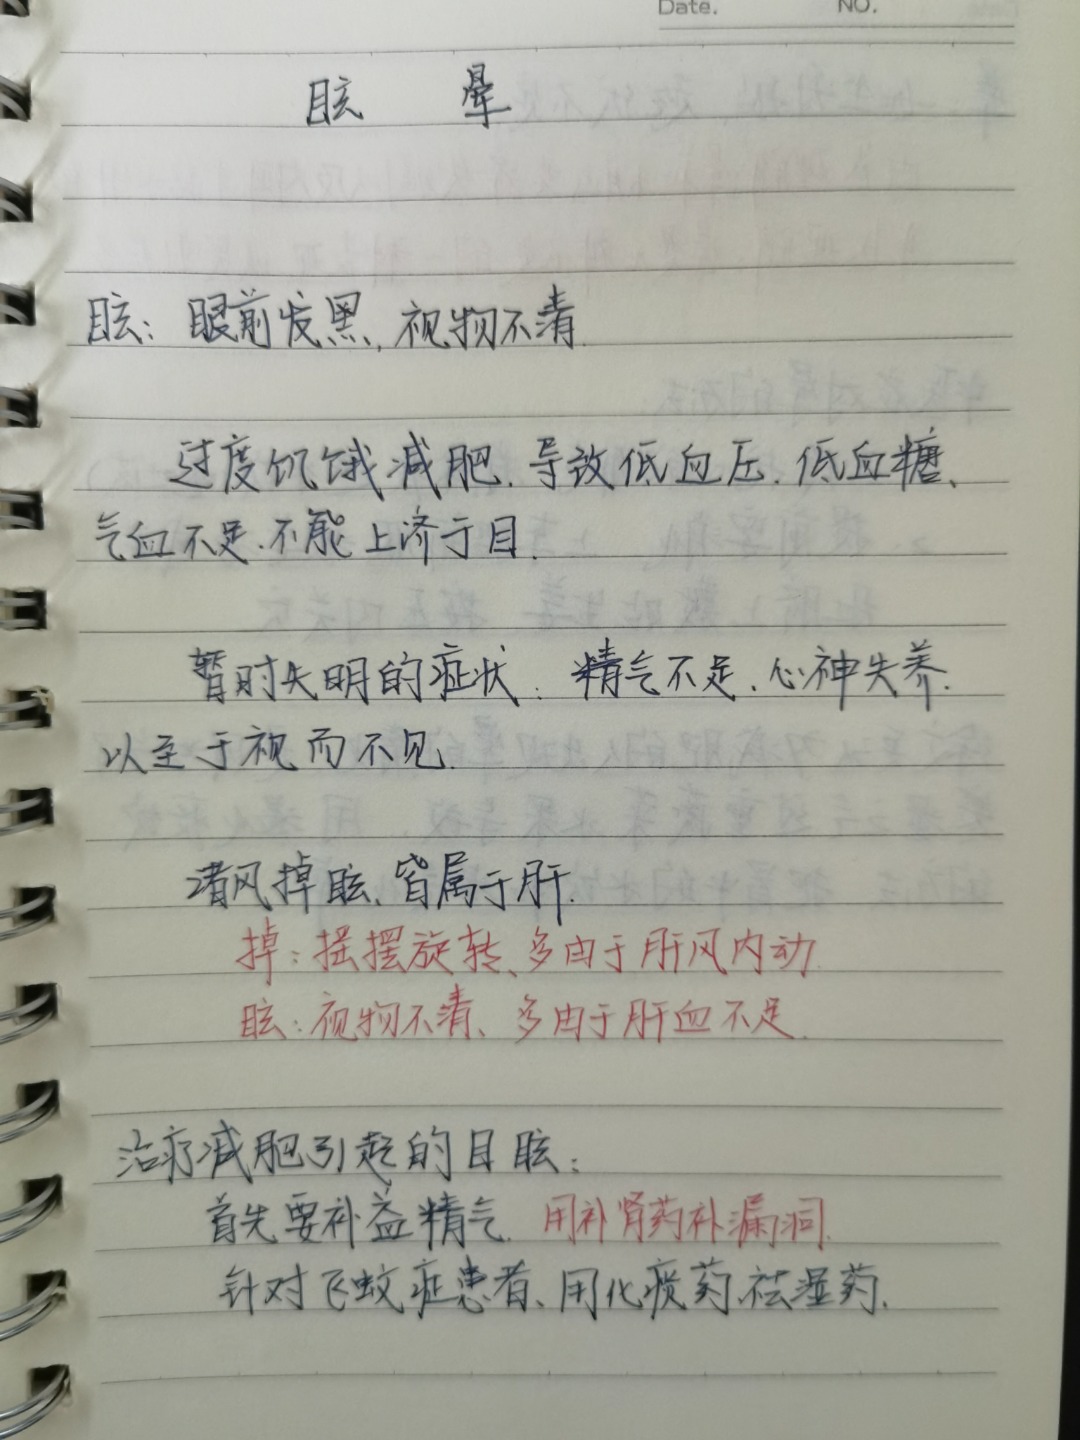 Date. NO.
眩 晕
眩：眼前发黑，视物不清.
过度饥饿减肥.导致低血压.低血糖、
气血不足.不能上济于目.
暂时失明的症状：精气不足.心神失养.
以至于视而不见.
诸风掉眩、皆属于肝.
掉：摇摆旋转、多由于肝风内动.
眩：视物不清、多由于肝血不足.
治疗减肥引起的目眩：
首先要补益精气.用补肾药补漏洞.
针对飞蚊症患者、用化痰药.祛湿药.